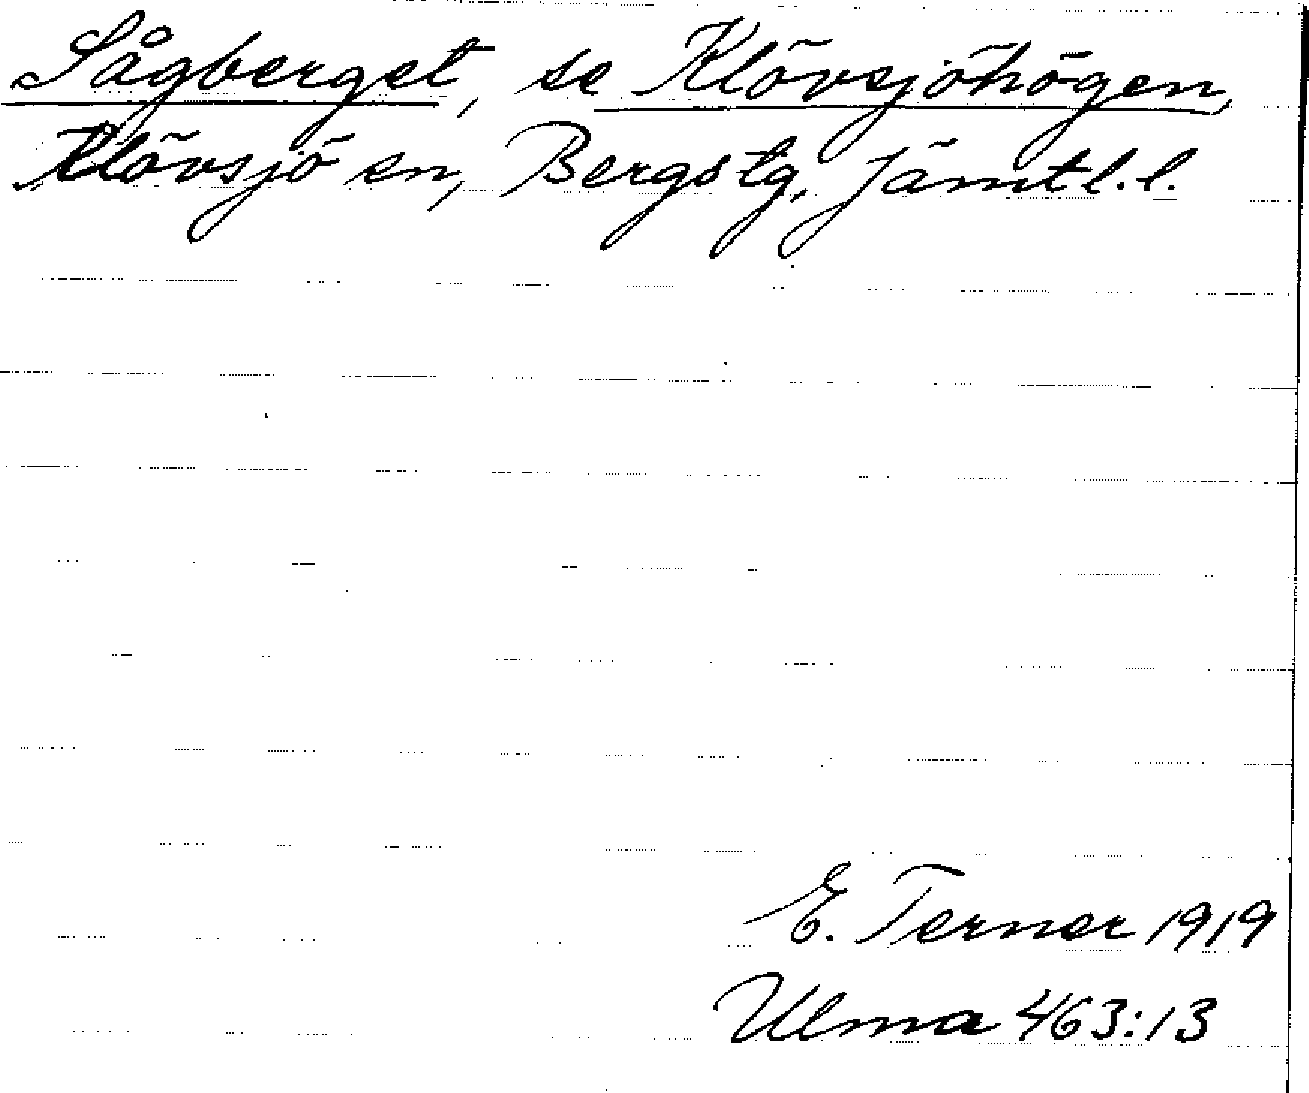 Sågberget, se Klövsjöhögen,
Klövsjö sn, Bergs tg, Jämtl.l.
E. Terner 1919
Ulma 463:13